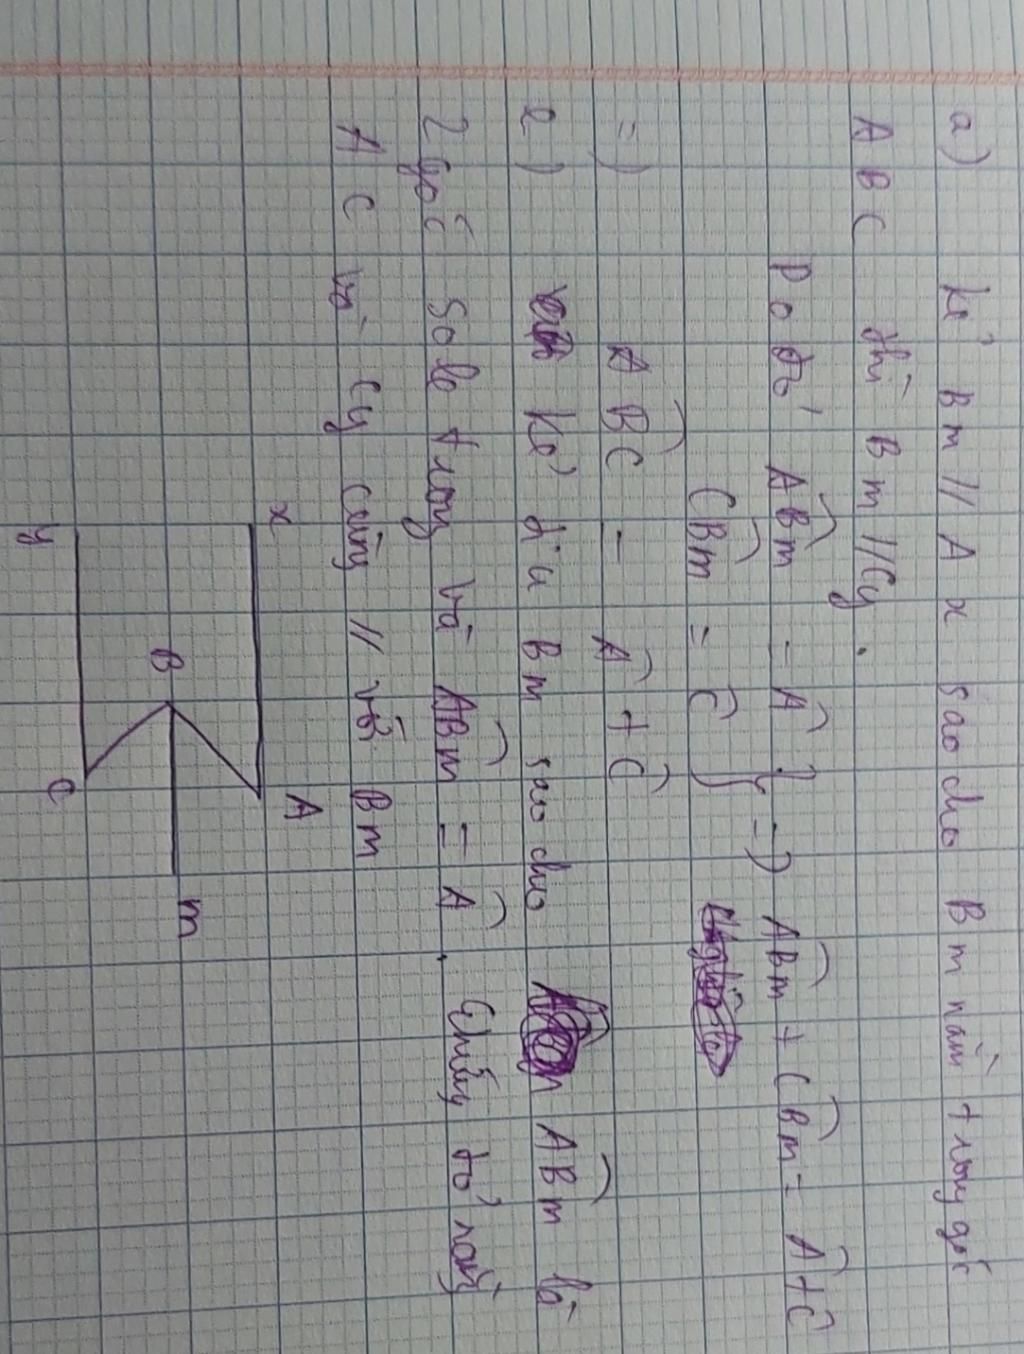 a) kẻ Bm // Ax sao cho Bm nằm trong góc
ABC thì Bm // Cy.
Do đó ABm = A } =) ABm + CBm = A + C
CBm = C
=) ABC = A + C
2) Kẻ tia Bm sao cho ABm là
2 góc so le trong và ABm = A. Chứng tỏ rằng
AC và Cy cùng // với Bm
x
A
B
m
y
C